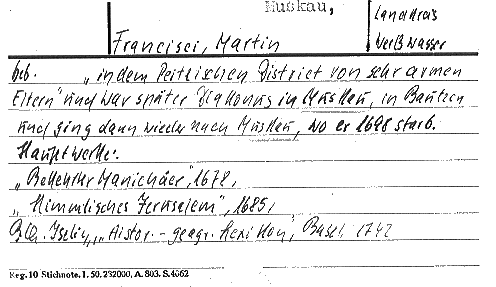 Muskau,
Landkreis
Weißwasser
Francisci, Martin
geb. "in dem Peitzischen District von sehr armen
Eltern" und war später Diakonus in Muskau, in Bautzen
und ging dann wieder nach Muskau, wo er 1698 starb.
Hauptwerke:
"Bekehrter Manichäer", 1678,
"Himmlisches Jerusalem", 1685,
Iselin, "Histor.-geogr. Lexikon", Basel 1742
Reg. 10 Stichnote. 1. 50. 232000, A. 803. S. 4662